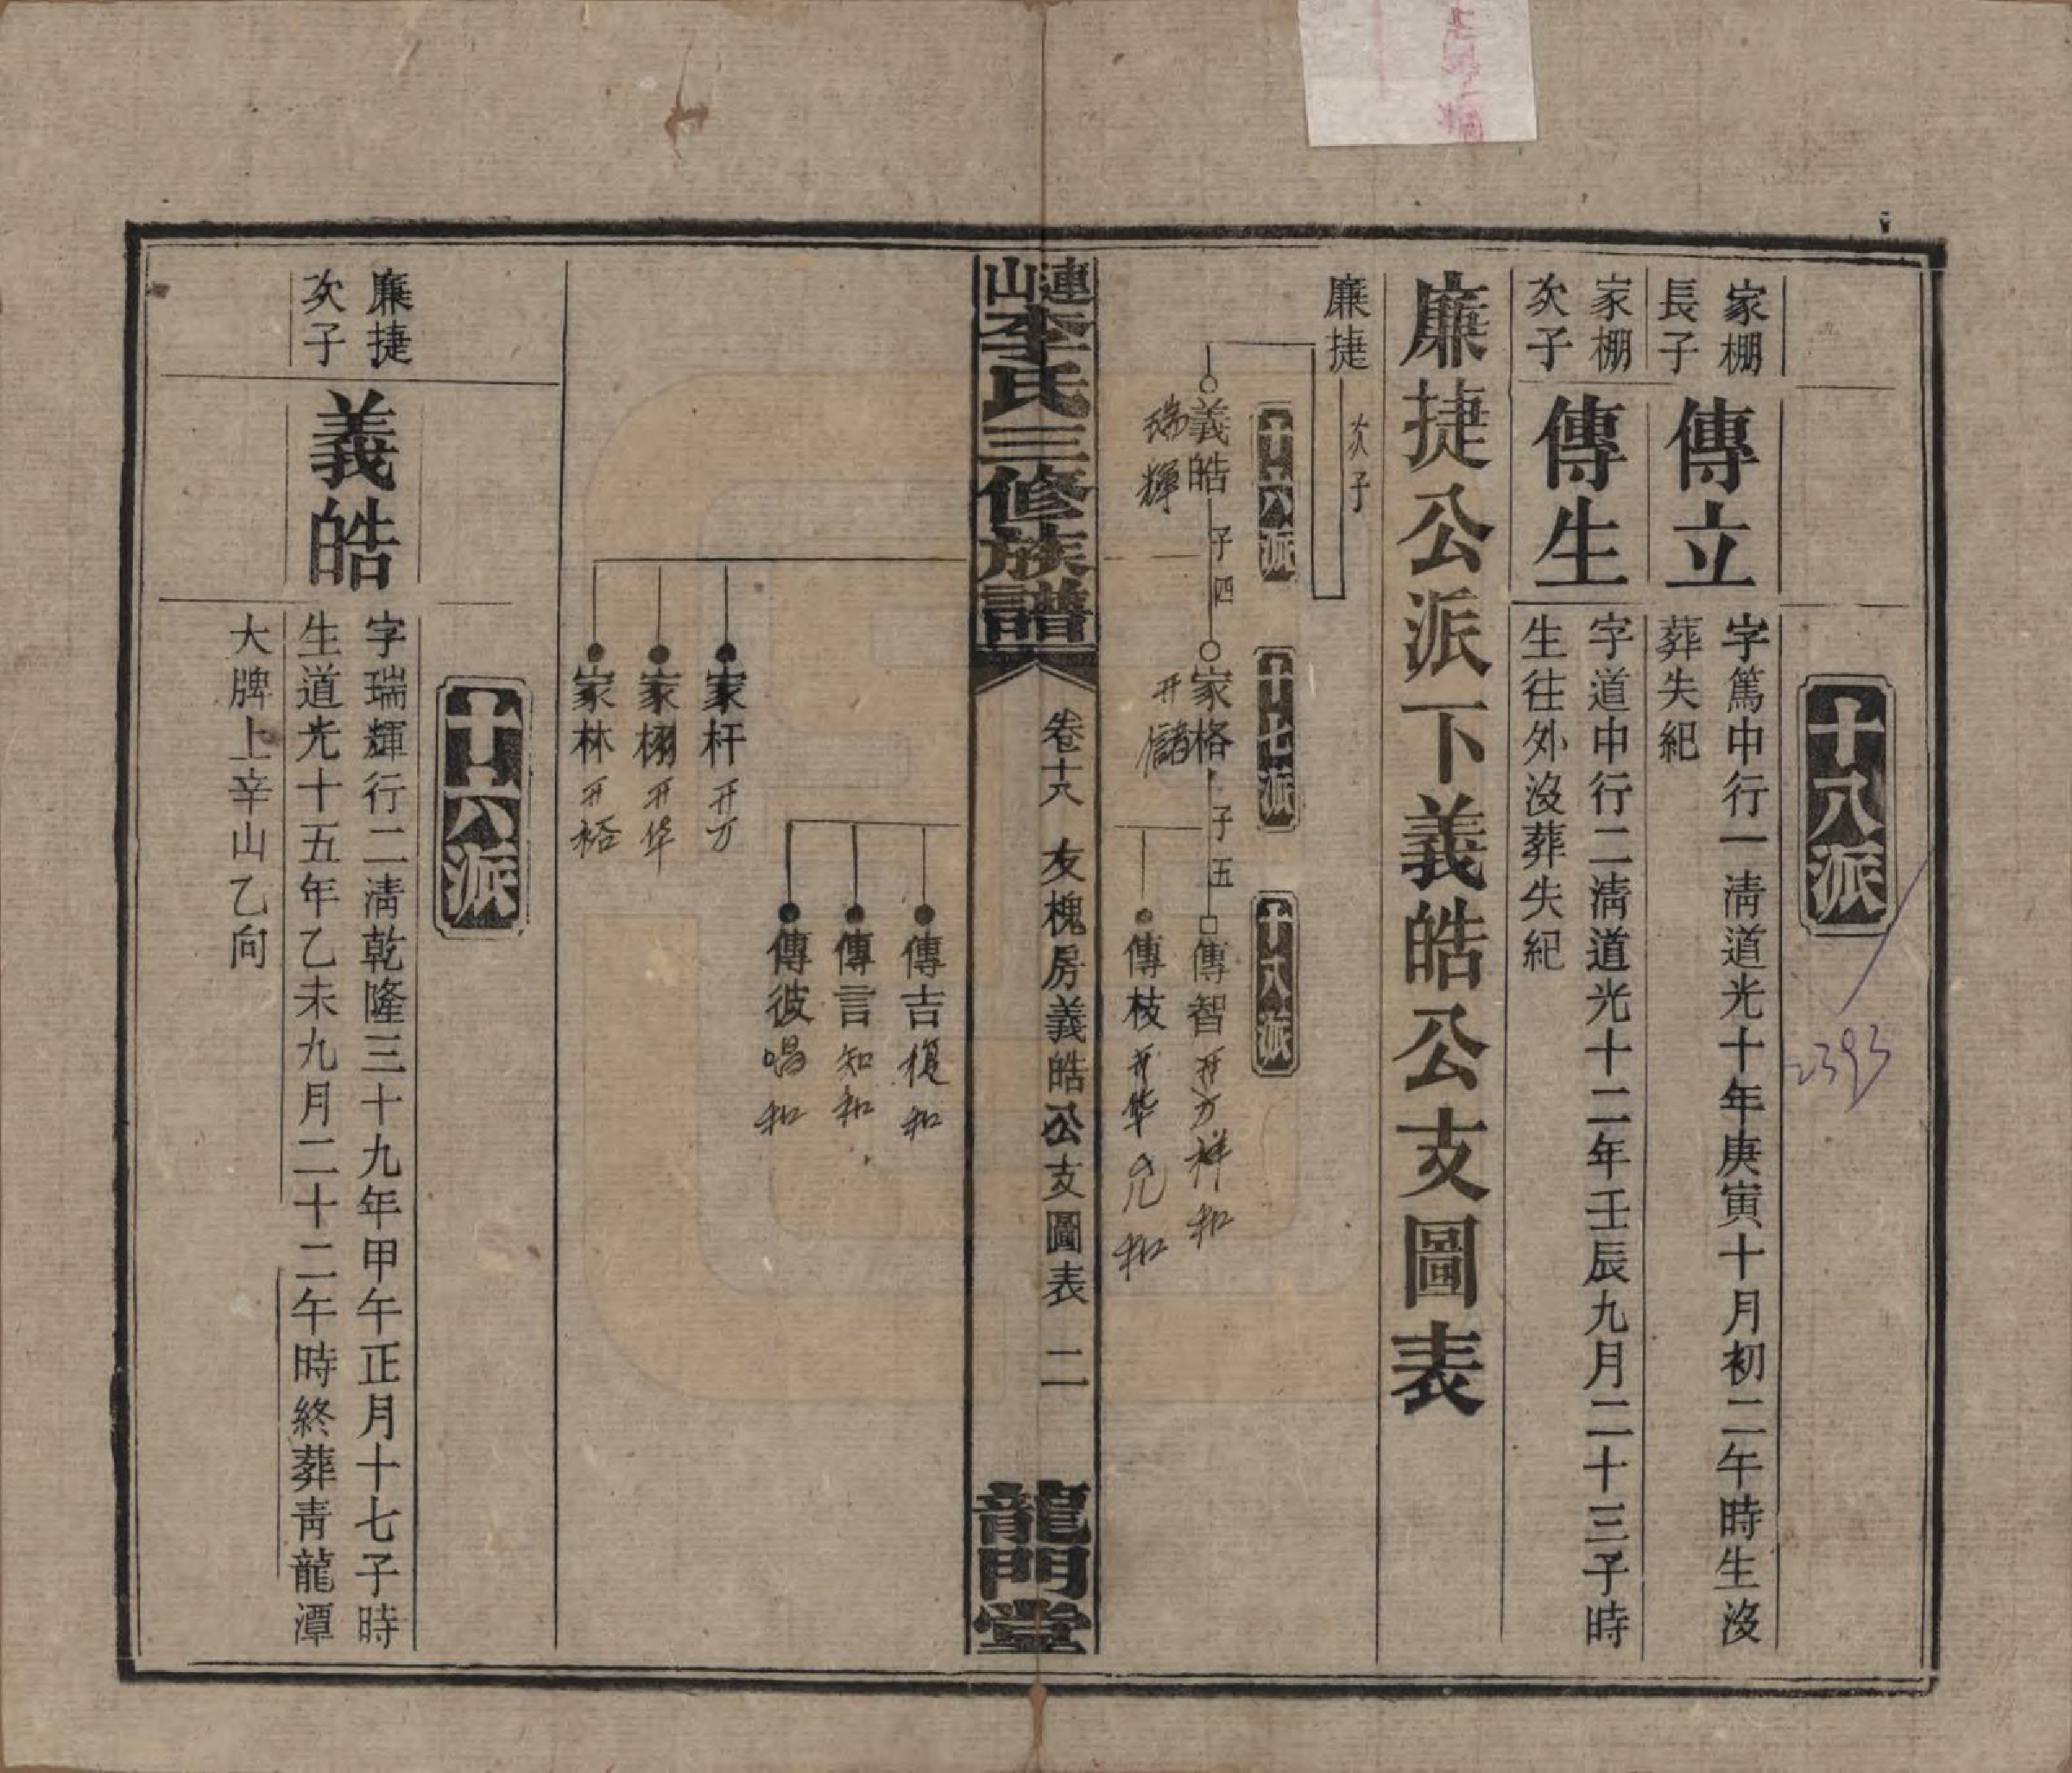 十八派
家棚
長子
傳立
字篤中行一淸道光十年庚寅十月初二午時生沒
葬失紀
家棚
次子
傳生
字道中行二淸道光十二年壬辰九月二十三子時
生往外沒葬失紀
廉捷公派下義皓公支圖表
廉捷
次子
十六派
十七派
十八派
義皓
子四
瑞輝
家格
子五
开儲
傳智
开万祥和
傳枝
开华兄和
連山李氏三修族譜
卷十六
友槐房義皓公支圖表
二
龍門堂
傳吉
復和
傳言
知和
傳彼
唱和
家杆
开万
家栩
开华
家林
开裕
十六派
廉捷
次子
義皓
字瑞輝行二淸乾隆三十九年甲午正月十七子時
生道光十五年乙未九月二十二午時終葬靑龍潭
大牌上辛山乙向
2393